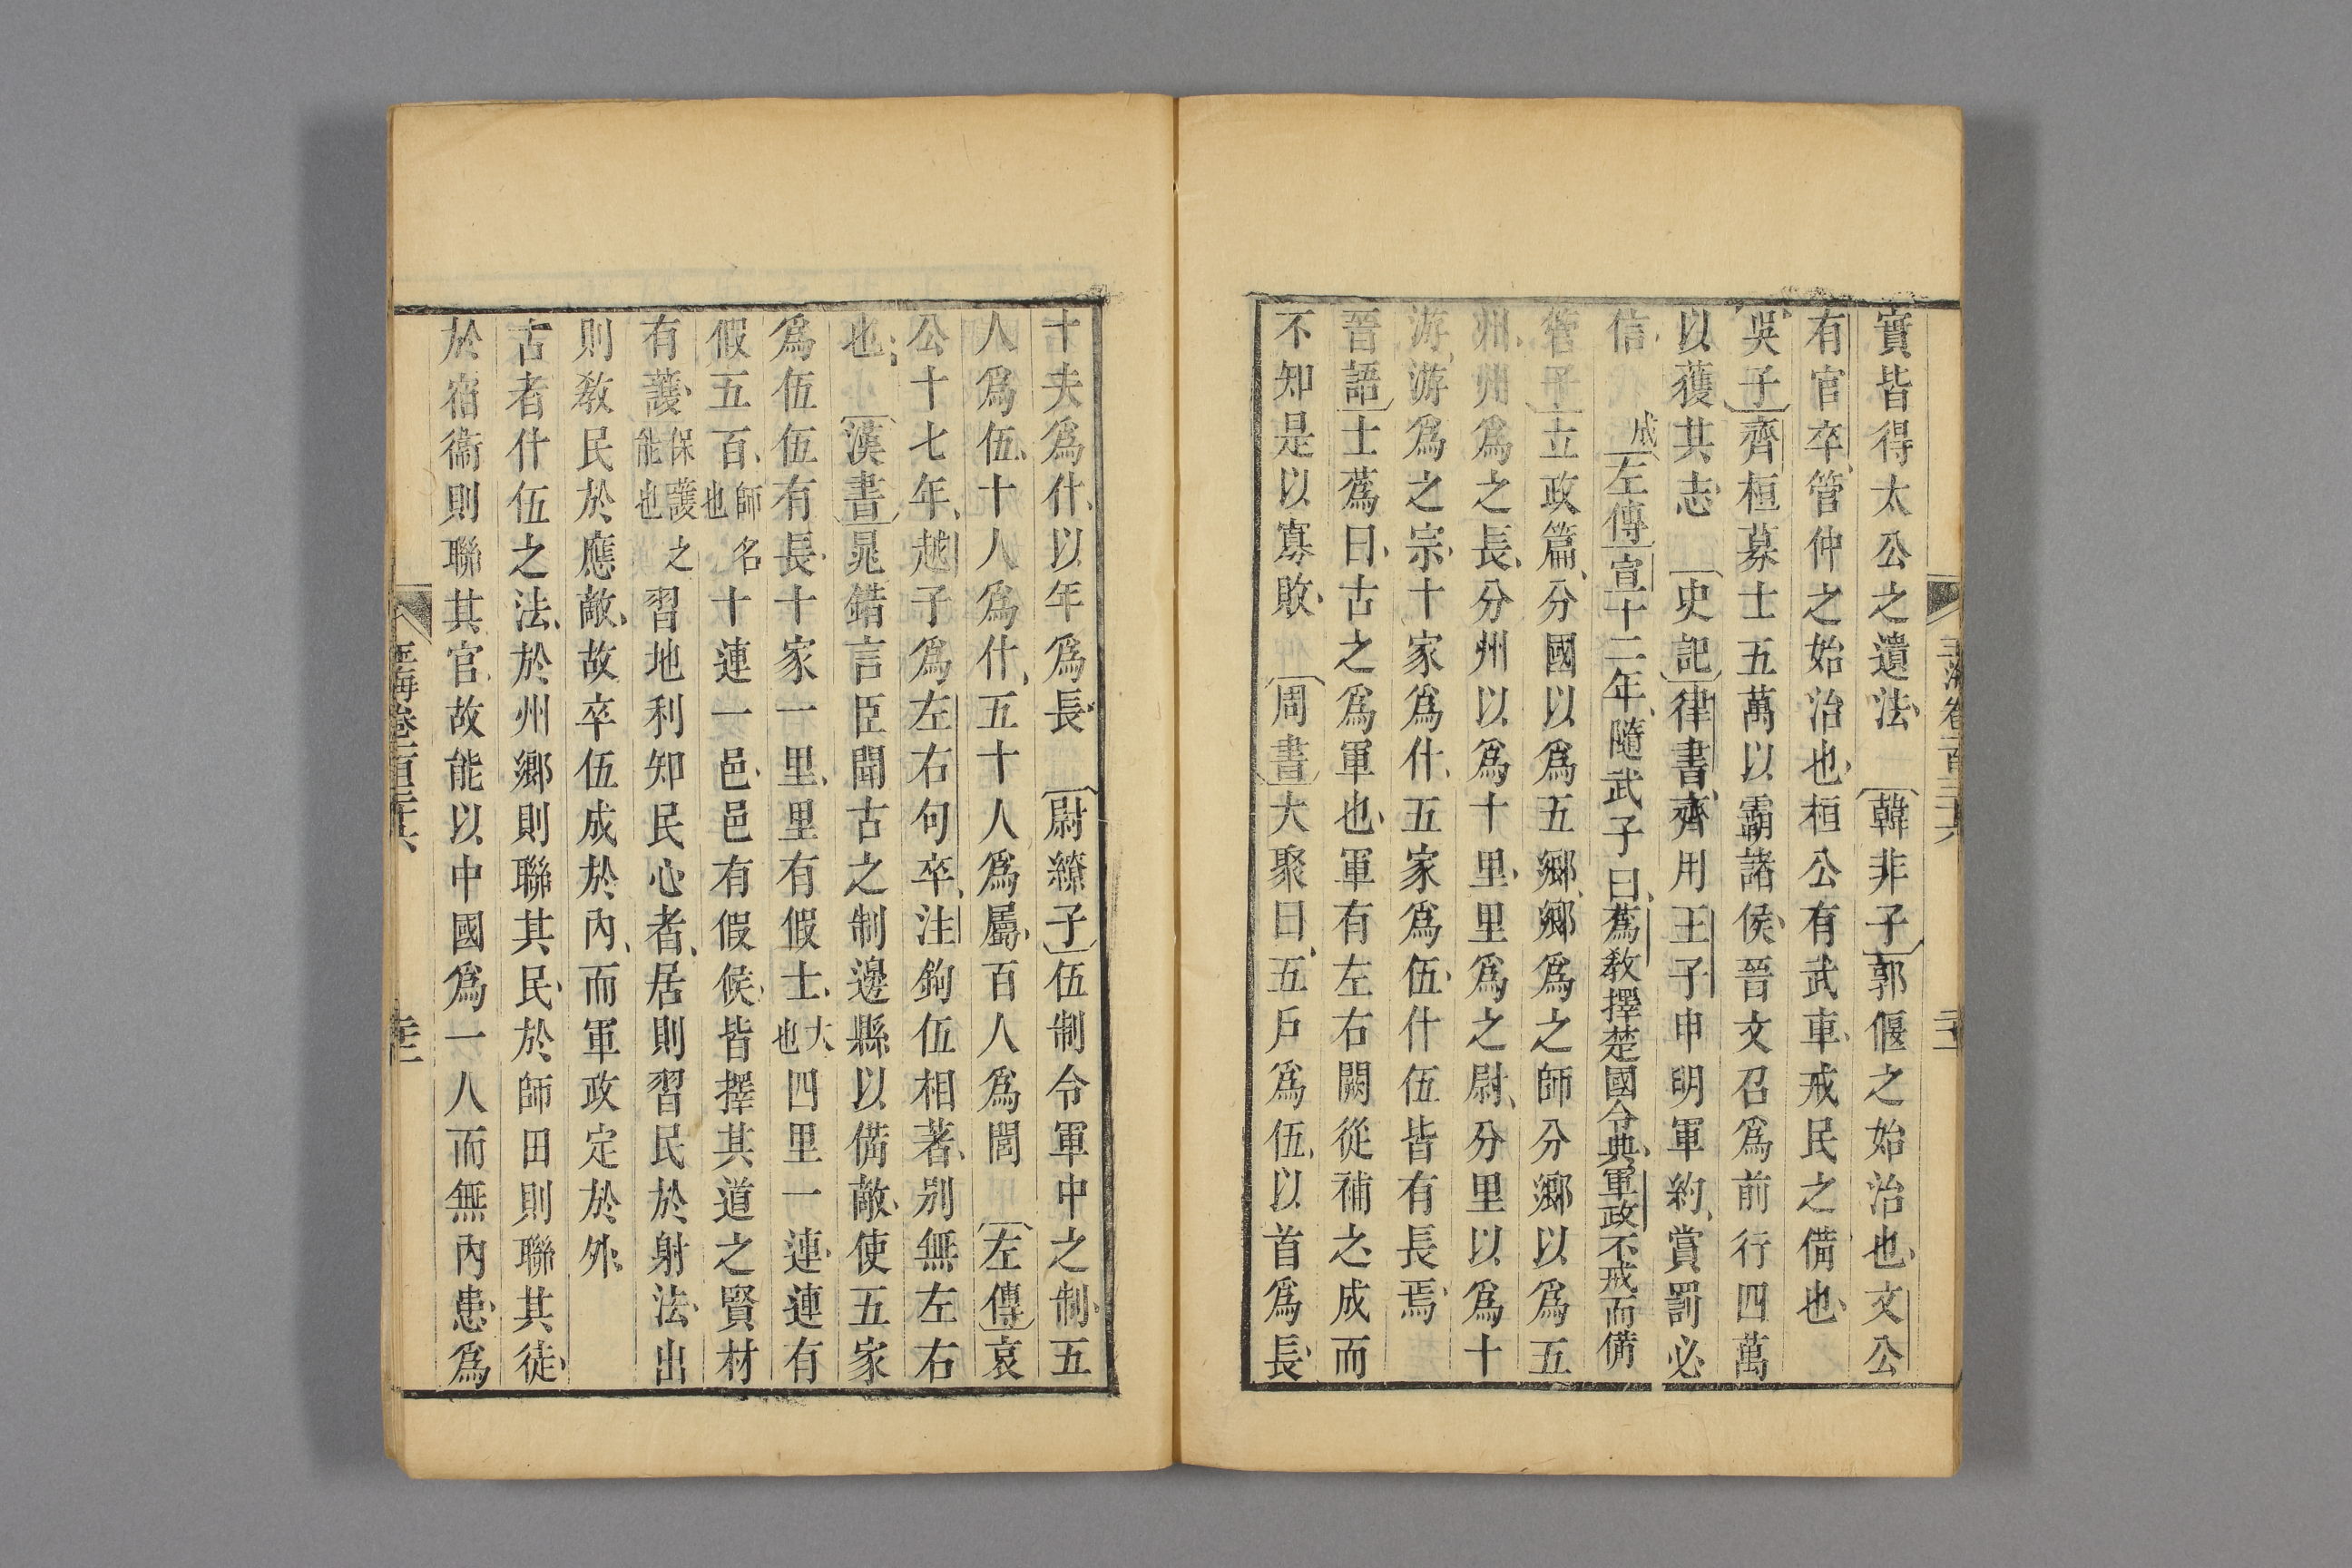 實皆得太公之遺法 韓非子郭偃之始治也文公
有官卒管仲之始治也桓公有武車戒民之備也
吳子齊桓募士五萬以霸諸侯晉文召為前行四萬
以獲其志 史記律書齊用王子申明軍約賞罰必
信 成左傳宣十二年隨武子曰蔿敎擇楚國令典軍政不戒而備
管子立政篇分國以為五鄉鄉為之師分鄉以為五
州州為之長分州以為十里里為之尉分里以為十
游游為之宗十家為什五家為伍什伍皆有長焉
晉語士蔿曰古之為軍也軍有左右闕從補之成而
不知是以寡敗 周書大聚曰五戶為伍以首為長
十夫為什以年為長 尉繚子伍制令軍中之制五
人為伍十人為什五十人為屬百人為閭 左傳哀
公十七年越子為左右句卒注鉤伍相著別無左右
也 漢書晁錯言臣聞古之制邊縣以備敵使五家
為伍伍有長十家一里里有假士大也四里一連連有
假五百師名也十連一邑邑有假候皆擇其道之賢材
有護保護之能也習地利知民心者居則習民於射法出
則敎民於應敵故卒伍成於內而軍政定於外
古者什伍之法於州鄉則聯其民於師田則聯其徒
於宿衞則聯其官故能以中國為一人而無內患為
玉海卷一百三十六